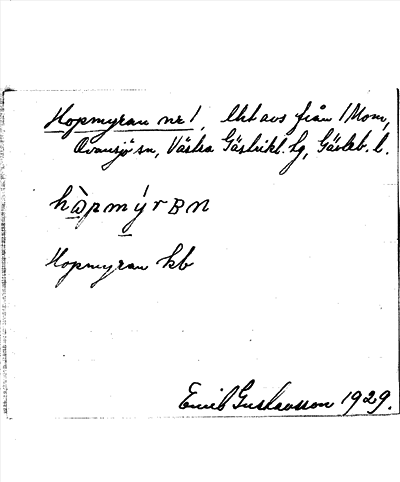 Hopmyran nr 1, lht avs från 1 Mom,
Ovansjö sn, Västra Gästrikl. tg, Gävleb. l.
hɷ̀pmýrʙn
Hopmyran kb
Emil Gustavsson 1929.